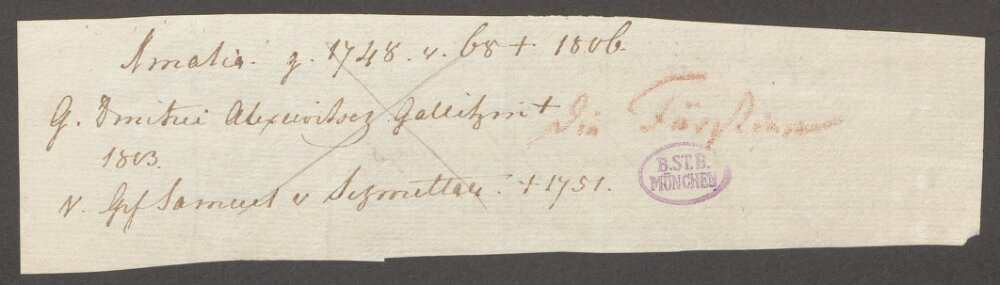 Amalia. g. 1748. v. 68 + 1806.
G. Dmitrei Alexewitsch Gallitzin +
1803.
V. Gf Samuel v Schmettau. + 1751.
Die Fürstinn
B.ST.B.
MÜNCHEN